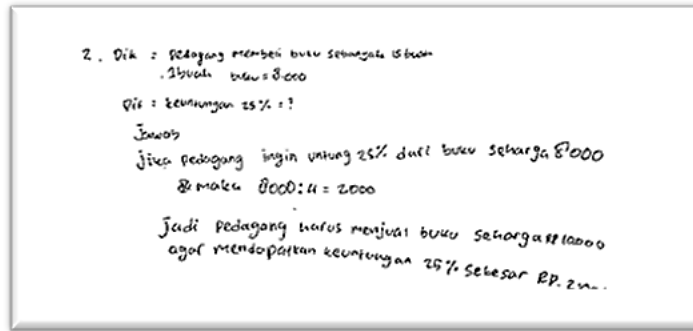 2. Dik : Pedagang membeli buku sebanyak 15 buah
. 1 buah buku = 8.000
Dit : keuntungan 25% = ?
Jawab
Jika pedagang ingin untung 25% dari buku seharga 8'000
maka 8000 : 4 = 2000
Jadi Pedagang harus menjual buku seharga RP 10000
agar mendapatkan keuntungan 25% sebesar RP.